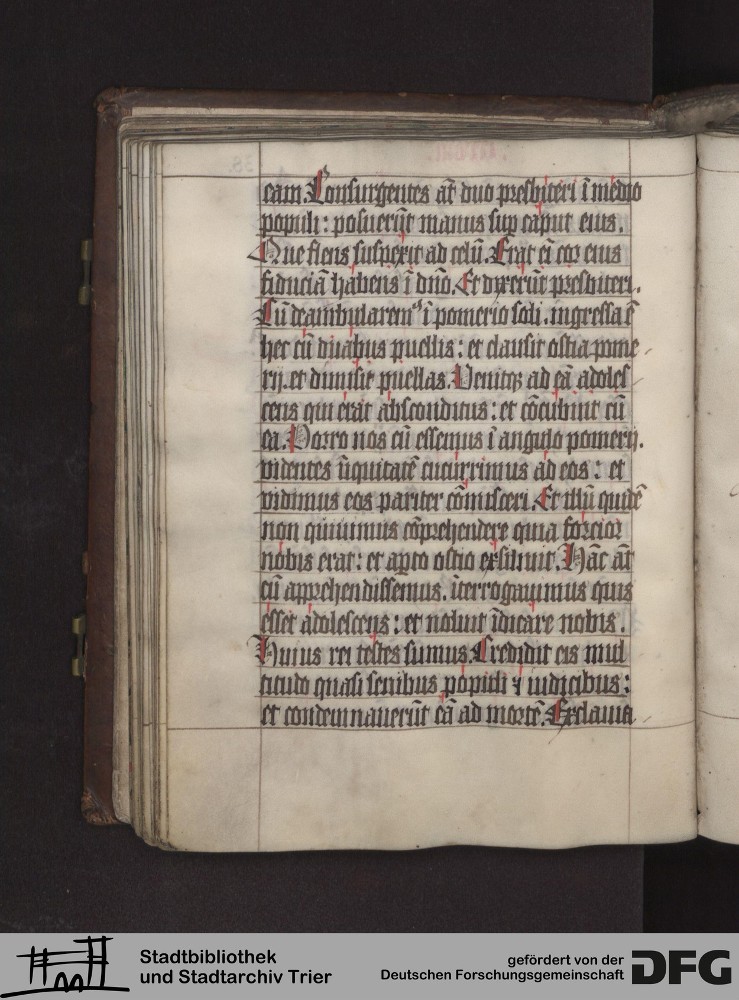 eam. Consurgentes at̄ duo presbiteri ī medio
populi: posuerūt manus suꝑ caput eius.
Que flens suspexit ad celū. Erat eī cor eius
fiduciā habens ī dn̄o. Et dixerūt presbiteri.
Cū deambularemꝰ ī pomerio soli. ingressa ē
hec cū duabus puellis: et clausit ostia pome
rij. et dimisit puellas. Venitqꝫ ad eā adoles
cens qui erat absconditus: et cōcubuit cū
ea. Porro nos cū essemus ī angulo pomerij.
videntes īiquitatē cucurrimus ad eos: et
vidimus eos pariter cōmisceri. Et illū quidē
non quiuimus cōprehendere quia forcior
nobis erat: et aꝑto ostio exsiliuit. Hāc at̄
cū apprehendissemus. īterrogauimus quis
esset adolescens: et noluit īdicare nobis.
Huius rei testes sumus. Credidit eis mul
titudo quasi senibus populi ⁊ iudicibus:
et condemnauerūt eā ad mortē. Exclama
Stadtbibliothek
und Stadtarchiv Trier
gefördert von der
Deutschen Forschungsgemeinschaft
DFG